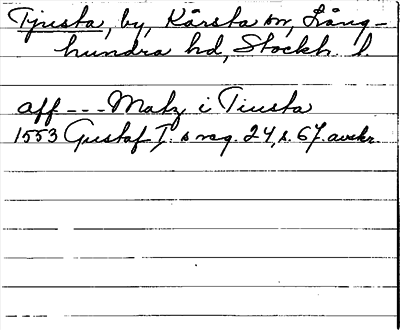 Tjusta, by, Kårsta sn, Lång-
hundra hd, Stockh. l.
aff --- Matz i Tiusta
1553 Gustaf I:s reg. 24, s. 67. avskr.